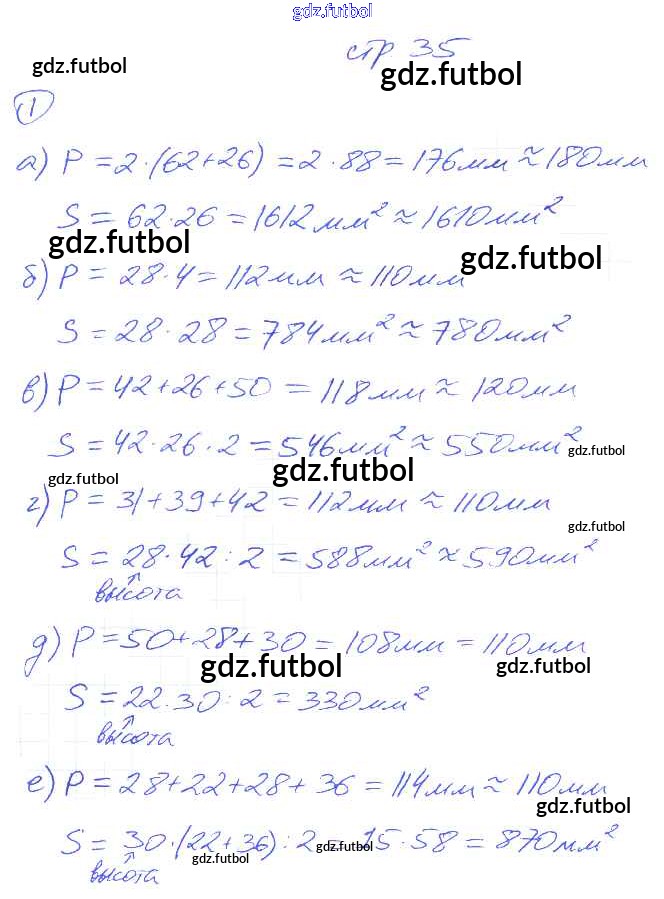 gdz.futbol
стр 35
gdz.futbol
gdz.futbol
1
а) P = 2·(62+26) = 2·88 = 176мм ≈ 180мм
S = 62·26 = 1612мм² ≈ 1610мм²
gdz.futbol
gdz.futbol
б) P = 28·4 = 112мм ≈ 110мм
S = 28·28 = 784мм² ≈ 780мм²
в) P = 42+26+50 = 118мм ≈ 120мм
S = 42·26·2 = 546мм² ≈ 550мм²
gdz.futbol
gdz.futbol
gdz.futbol
г) P = 31+39+42 = 112мм ≈ 110мм
gdz.futbol
S = 28·42:2 = 588мм² ≈ 590мм²
↑
высота
д) P = 50+28+30 = 108мм = 110мм
gdz.futbol
gdz.futbol
S = 22·30:2 = 330мм²
↑
высота
е) P = 28+22+28+36 = 114мм ≈ 110мм
gdz.futbol
S = 30·(22+36):2 = 15·58 = 870мм²
gdz.futbol
gdz.futbol
↑
высота